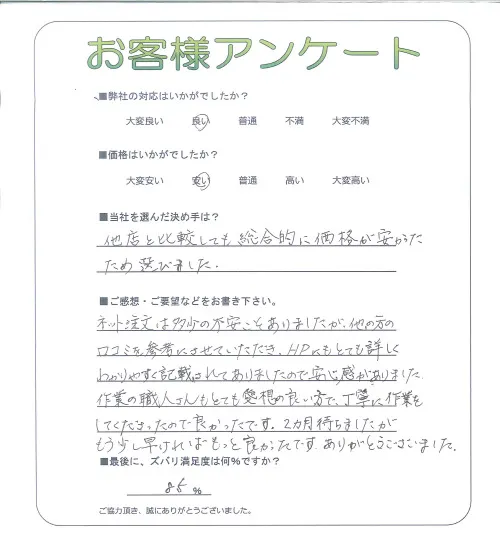 お客様アンケート
■弊社の対応はいかがでしたか？
大変良い 良い 普通 不満 大変不満
■価格はいかがでしたか？
大変安い 安い 普通 高い 大変高い
■当社を選んだ決め手は？
他店と比較しても総合的に価格が安かった
ため選びました.
■ご感想・ご要望などをお書き下さい。
ネット注文は多少の不安こそありましたが、他の方の
口コミを参考にさせていただき、HPにもとても詳しく
わかりやすく記載されてありましたので安心感がありました.
作業の職人さんもとても愛想の良い方で、丁寧に作業を
してくださったので良かったです。2カ月待ちましたが
もう少し早ければもっと良かったです. ありがとうございました.
■最後に、ズバリ満足度は何％ですか？
85 %
ご協力頂き、誠にありがとうございました。